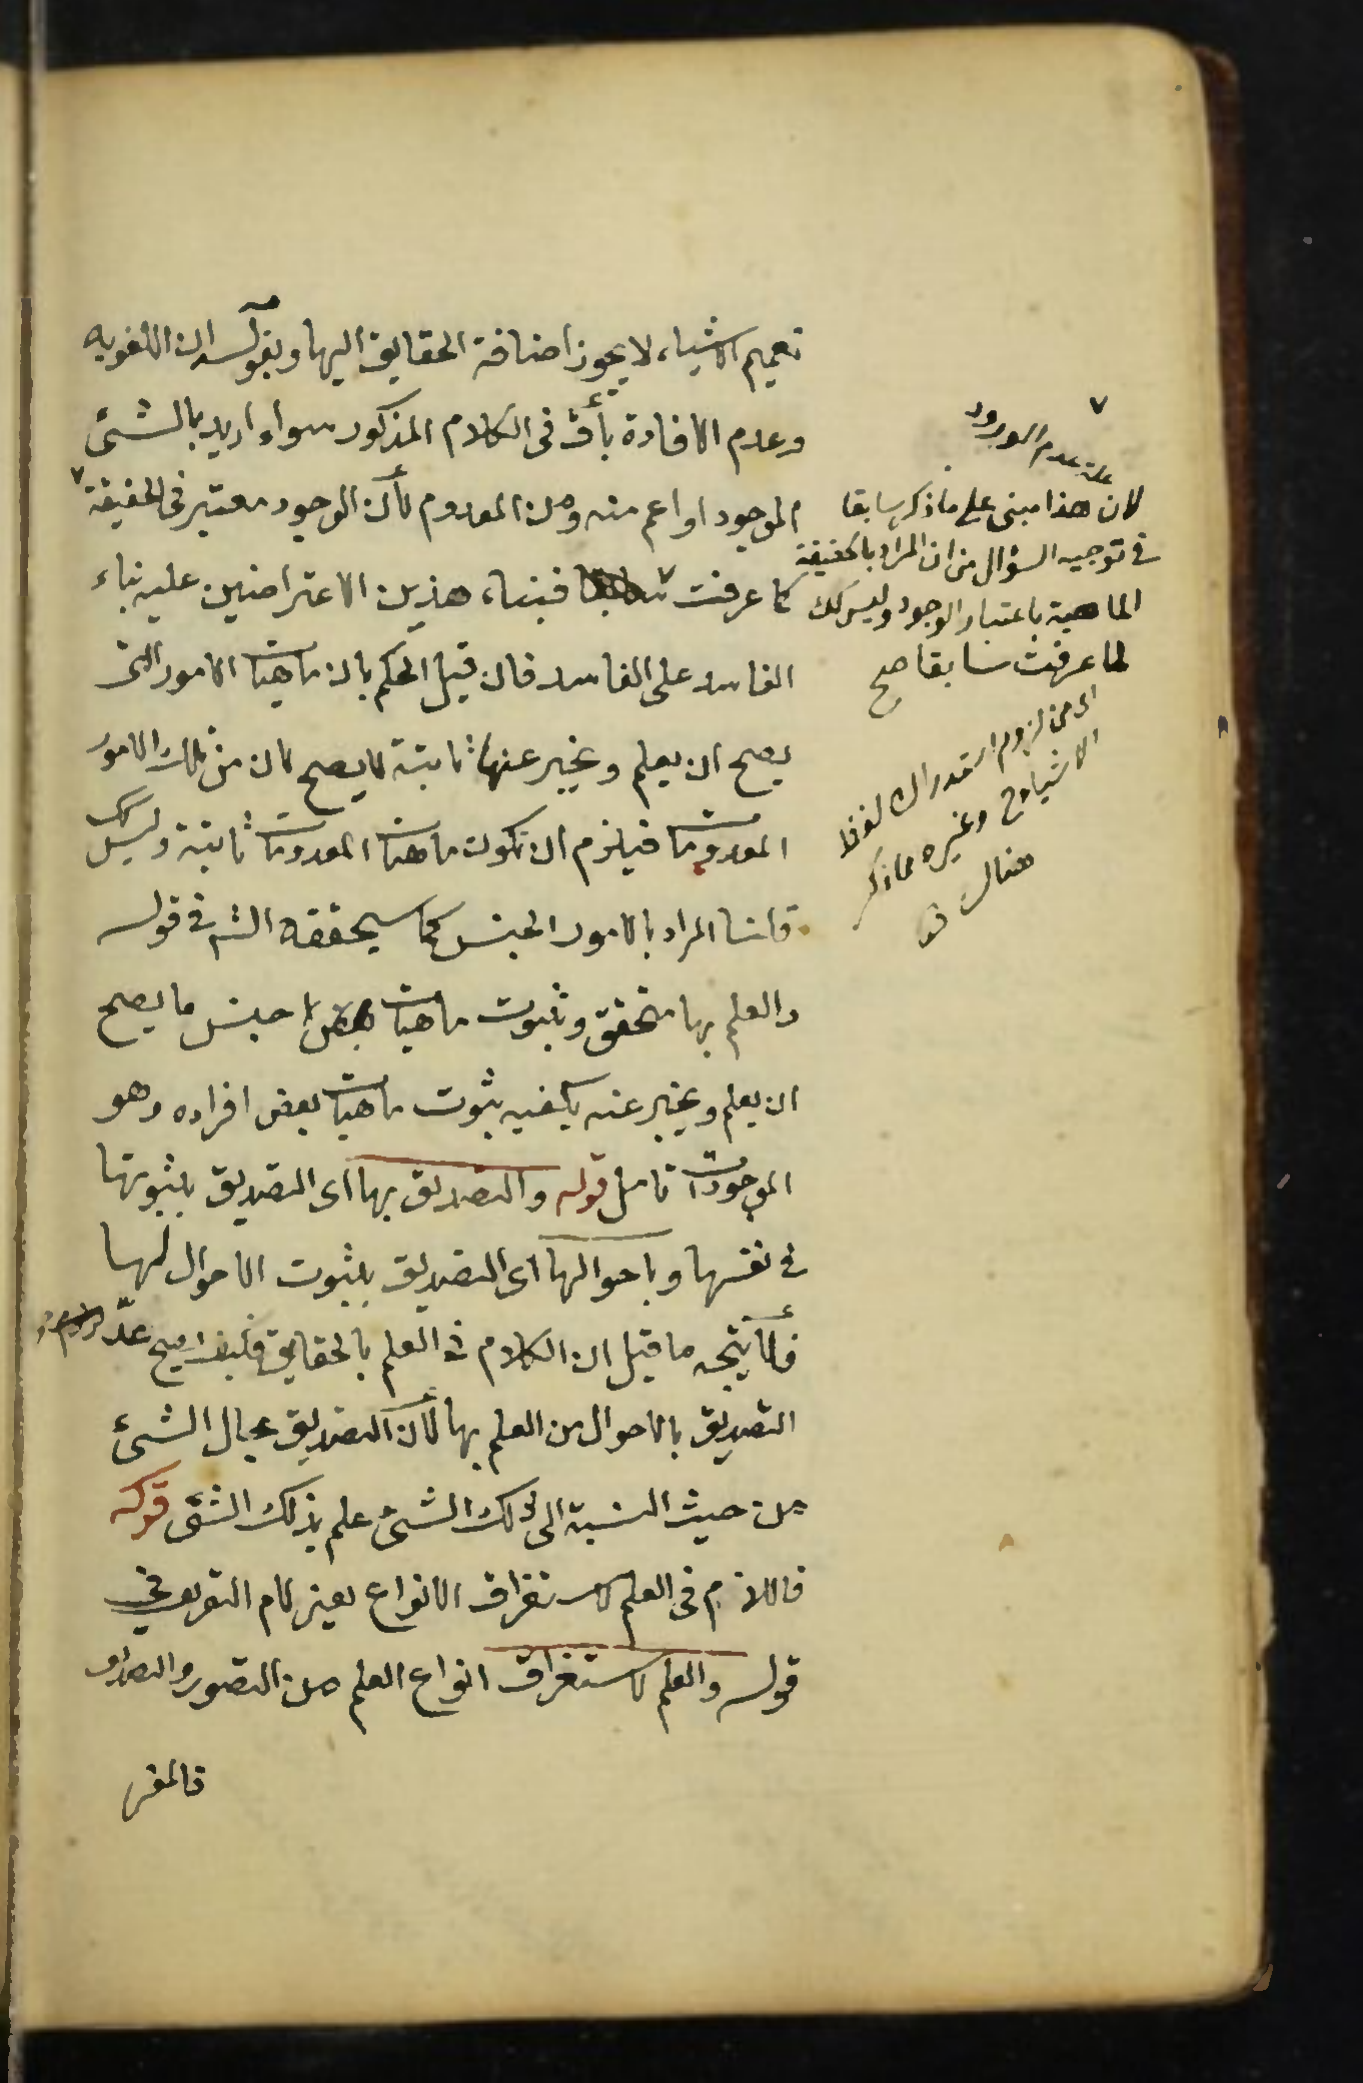 تعميم الاشياء لا يجوز اضافة الحقايق اليها وبقوله ان اللغويه
وعدم الافادة باق فى الكلام المذكور سواء اريد بالشئ
الموجود او اعم منه ومن المعدوم لأن الوجود معتبر فى الحقيقة
كما عرفت فبناء هذين الاعتراضين عليه بناء
الفاسد على الفاسد فان قيل الحكم بان ماهيات الامور التى
يصح ان يعلم ويخبر عنها ثابتة لا يصح لان من تلك الامور
المعدومات فيلزم ان تكون ماهيات المعدومات ثابتة وليس كك
قلنا المراد بالامور الجنس كما سيحققه الش فى قوله
والعلم بها متحقق وثبوت ماهيات جنس ما يصح
ان يعلم ويخبر عنه يكفيه ثبوت ماهيات بعض افراده وهو
الموجودات تامل قوله والتصديق بها اى التصديق بثبوتها
فى نفسها وباحوالها اى التصديق بثبوت الاحوال لها
فلا يتجه ما قيل ان الكلام فى العلم بالحقايق فكيف يصح عدّ
التصديق بالاحوال من العلم بها لأن التصديق بحال الشئ
من حيث النسبة الى ذلك الشئ علم بذلك الشئ قوله
فاللازم فى العلم لاستغراق الانواع يعنى لام التعريف فى
قوله والعلم لاستغراق انواع العلم من التصور والتصديق
فالمعنى
علة عدم الورود
لان هذا مبنى على ما ذكره سابقا
فى توجيه السؤال من ان المراد بالحقيقة
الماهية باعتبار الوجود وليس كك
لما عرفت سابقا صح
اى من لزوم استدراك لفظ
الاشياء وغيره مما ذكر
هناك